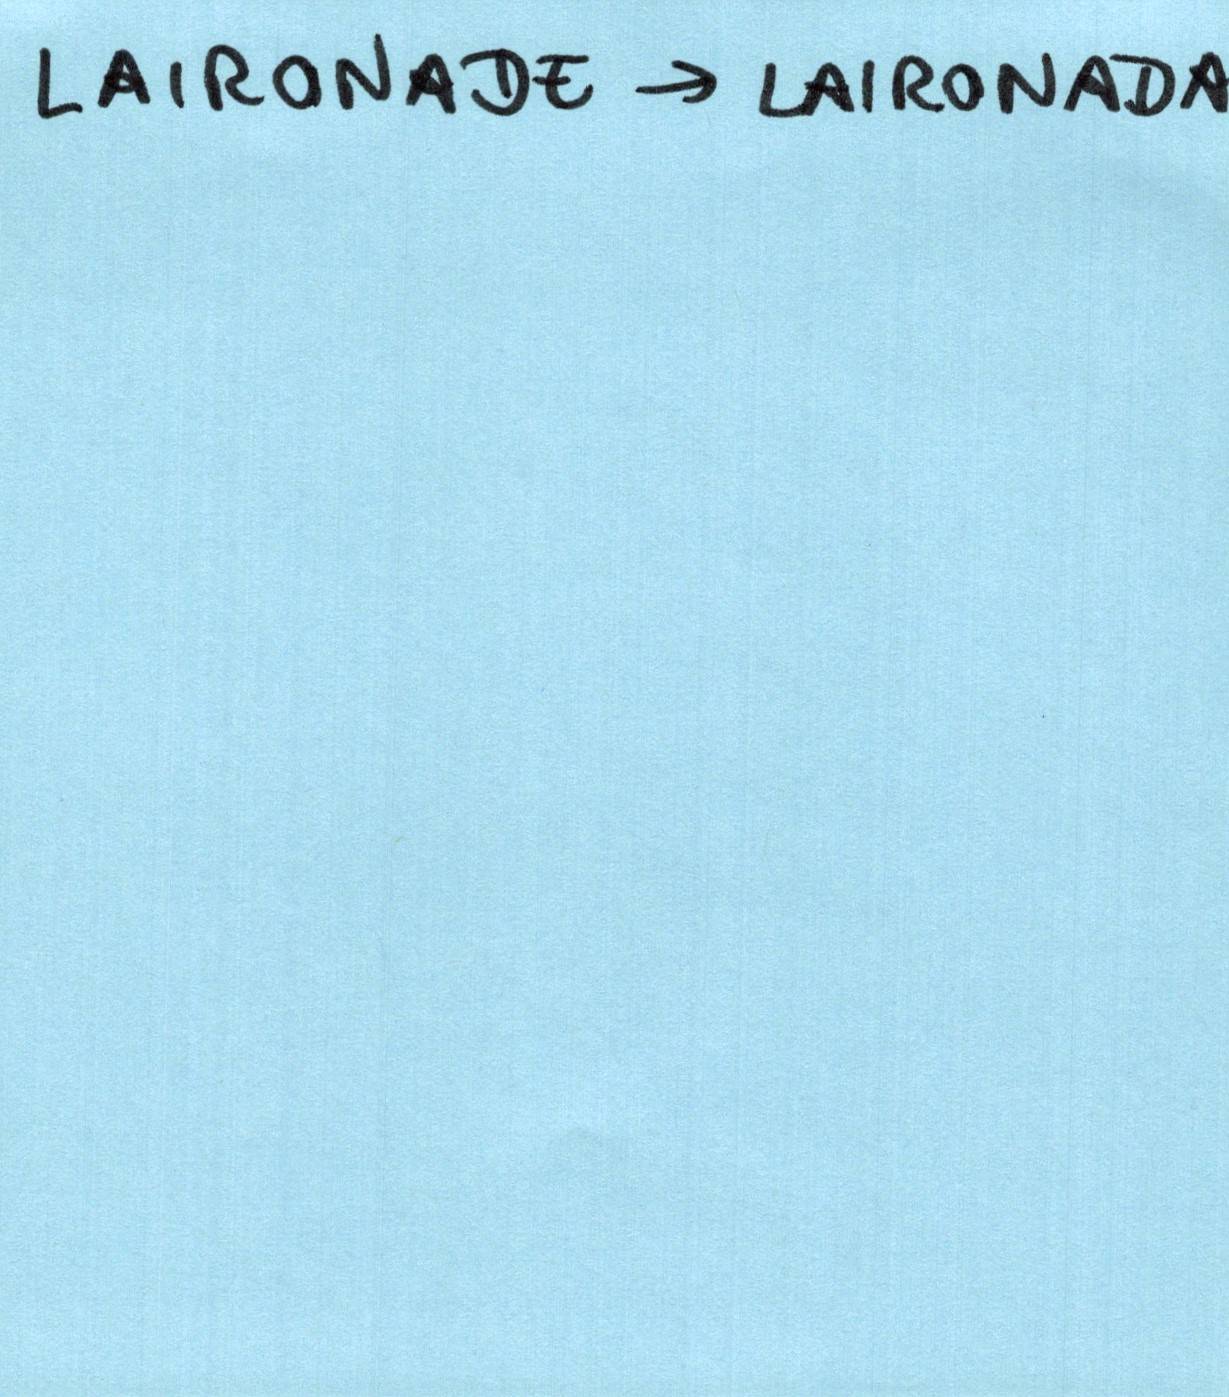 LAIRONADE → LAIRONADA